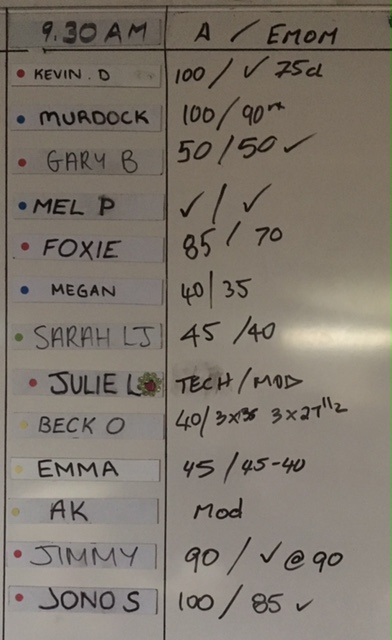 9.30 AM A / EMOM
KEVIN. D 100 / ✓ 75cl
MURDOCK 100 / 90
GARY B 50 / 50 ✓
MEL P ✓ / ✓
FOXIE 85 / 70
MEGAN 40 | 35
SARAH LJ 45 / 40
JULIE L TECH / MOD
BECK O 40 / 3x35 3x27 1/2
EMMA 45 / 45-40
AK Mod
JIMMY 90 / ✓ @ 90
JONO S 100 / 85 ✓